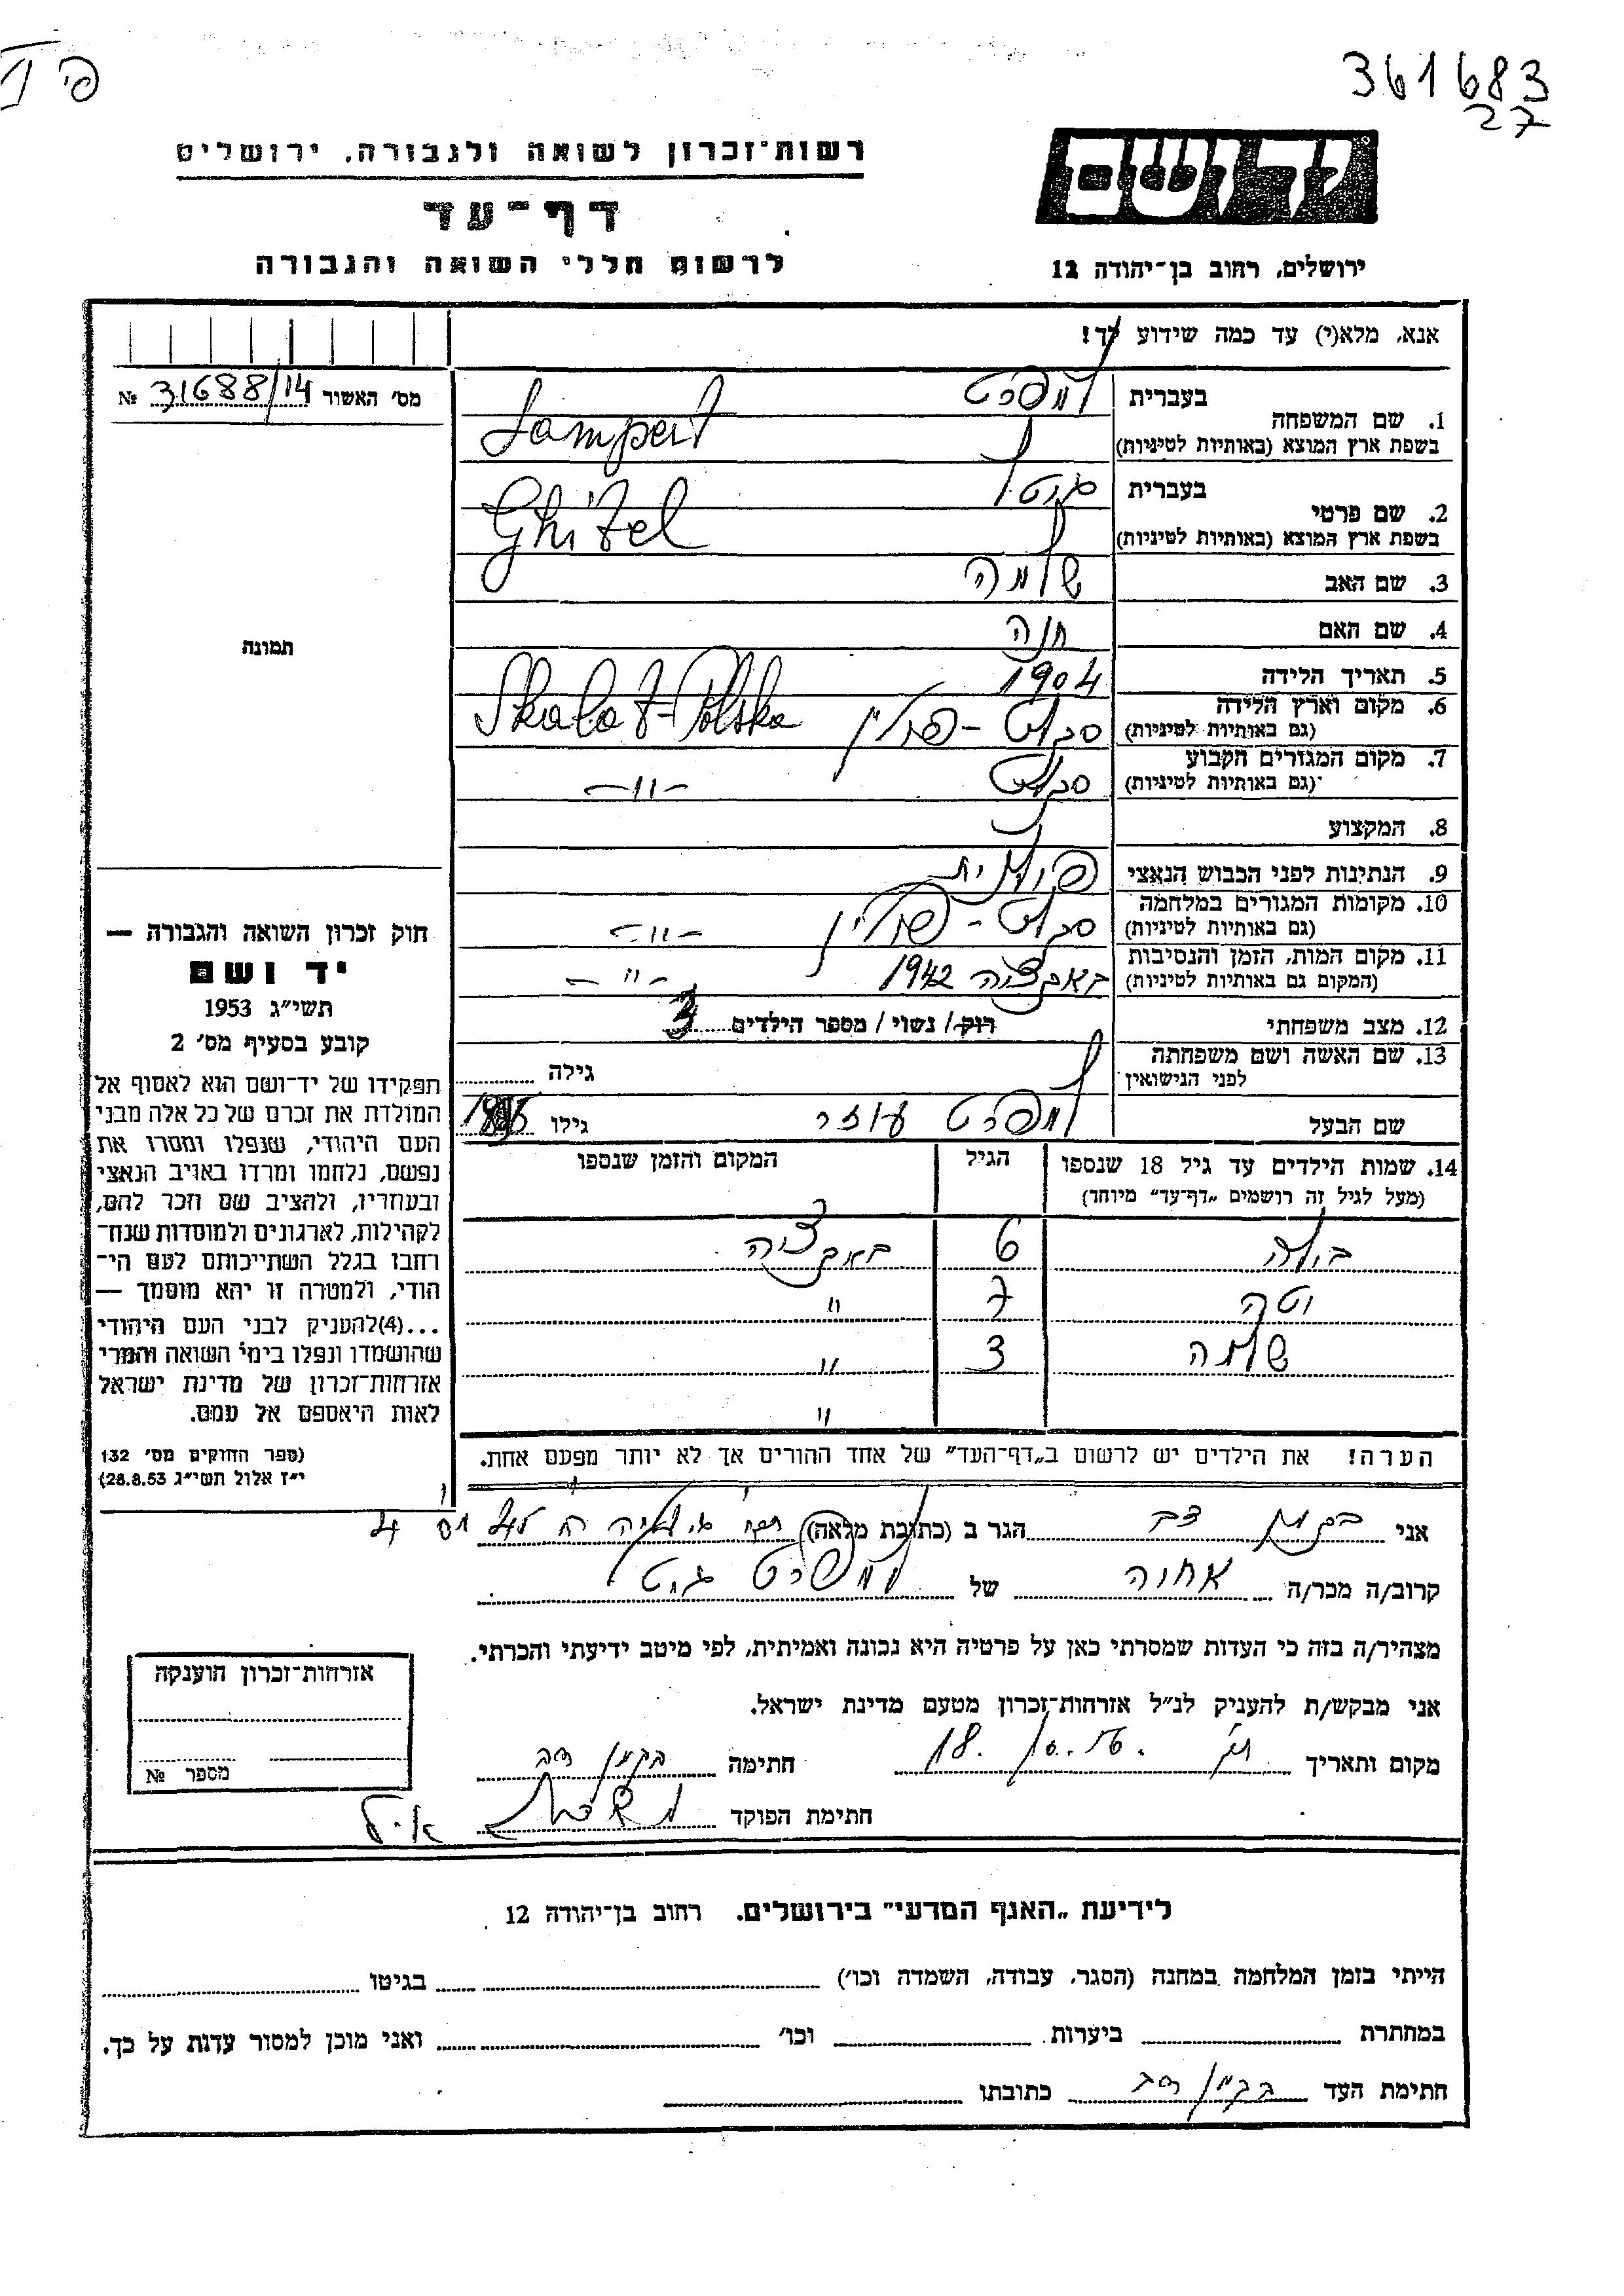 361683
27
פי
רשות־זכרון לשואה ולגבורה, ירושלים
דף־עד
לרשום חללי השואה והגבורה
יד ושם
ירושלים, רחוב בן־יהודה 12
אנא, מלא(י) עד כמה שידוע לך!
מס׳ האשור 31688/14 №
1. שם המשפחה
בעברית למפרט
בשפת ארץ המוצא (באותיות לטיניות) Lampert
2. שם פרטי
בעברית גיטל
בשפת ארץ המוצא (באותיות לטיניות) Ghitel
3. שם האב שלמה
4. שם האם חנה
5. תאריך הלידה 1904
6. מקום וארץ הלידה
(גם באותיות לטיניות) סקלט - פולין Skalat-Polska
7. מקום המגורים הקבוע
(גם באותיות לטיניות) סקלט -״-
8. המקצוע
9. הנתינות לפני הכבוש הנאצי פולנית
10. מקומות המגורים במלחמה
(גם באותיות לטיניות) סקלט - פולין -״-
11. מקום המות, הזמן והנסיבות
(המקום גם באותיות לטיניות) באקציה 1942 -״-
12. מצב משפחתי רוק/ נשוי/ מספר הילדים 3
13. שם האשה ושם משפחתה
לפני הנישואין גילה
שם הבעל למפרט עוזר גילו
14. שמות הילדים עד גיל 18 שנספו
(מעל לגיל זה רושמים „דף־עד” מיוחד)
הגיל
המקום והזמן שנספו
6 באקציה
7 ״
שלמה 3 ״
״
הערה! את הילדים יש לרשום ב„דף־העד” של אחד ההורים אך לא יותר מפעם אחת.
תמונה
חוק זכרון השואה והגבורה —
יד ושם
תשי״ג 1953
קובע בסעיף מס׳ 2
תפקידו של יד־ושם הוא לאסוף אל
המולדת את זכרם של כל אלה מבני
העם היהודי, שנפלו ומסרו את
נפשם, נלחמו ומרדו באויב הנאצי
ובעוזריו, ולהציב שם וזכר להם,
לקהילות, לארגונים ולמוסדות שנח־
רחבו בגלל השתייכותם לעם הי־
הודי, ולמטרה זו יהא מוסמך —
...(4)להעניק לבני העם היהודי
שהושמדו ונפלו בימי השואה והמרי
אזרחות־זכרון של מדינת ישראל
לאות היאספם אל עמם.
(ספר החוקים מס׳ 132
י״ז אלול תשי״ג 28.8.53)
אני בקמן דב הגר ב (כתובת מלאה)
קרוב/ה מכר/ה אחוה של למפרט גיטל
מצהיר/ה בזה כי העדות שמסרתי כאן על פרטיה היא נכונה ואמיתית, לפי מיטב ידיעתי והכרתי.
אני מבקש/ת להעניק לנ״ל אזרחות־זכרון מטעם מדינת ישראל.
מקום ותאריך 18. חתימה בקמן דב
חתימת הפוקד
אזרחות־זכרון הוענקה
מספר №
לידיעת „האגף המדעי” בירושלים. רחוב בן־יהודה 12
הייתי בזמן המלחמה במחנה (הסגר, עבודה, השמדה וכו׳) בגיטו
במחתרת ביערות וכו׳ ואני מוכן למסור עדות על כך.
חתימת העד בקמן דב כתובתו